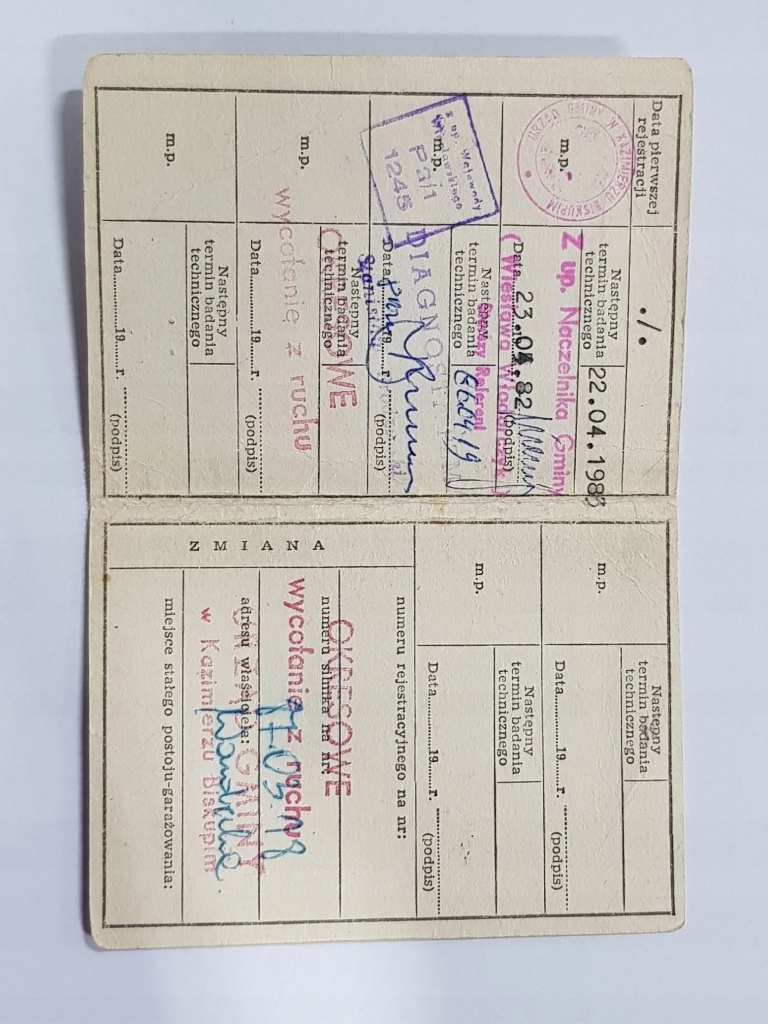 Data pierwszej
rejestracji
./.
URZĄD GMINY W KAZIMIERZU BISKUPIM
m.p.
Następny
termin badania
technicznego
22.04.1983
Z up. Naczelnika Gminy
Data 23.04.82
(podpis)
(Wiesława Włodarczyk)
Referent
z up. Wojewody
Włocławskiego
1245
m.p.
Następny
termin badania
technicznego
DIAGNOS
Data........19......r.
m.p.
Następny
termin badania
technicznego
OKRESOWE
wycofanie z ruchu
Data........19......r. (podpis)
m.p.
Następny
termin badania
technicznego
Data........19......r. (podpis)
m.p.
Następny
termin badania
technicznego
Data........19......r. (podpis)
m.p.
Następny
termin badania
technicznego
Data........19......r. (podpis)
ZMIANA
numeru rejestracyjnego na nr:
numeru silnika na nr:
OKRESOWE
wycofanie z ruchu
adresu właściciela:
URZĄD GMINY
w Kazimierzu Biskupim
miejsce stałego postoju-garażowania: